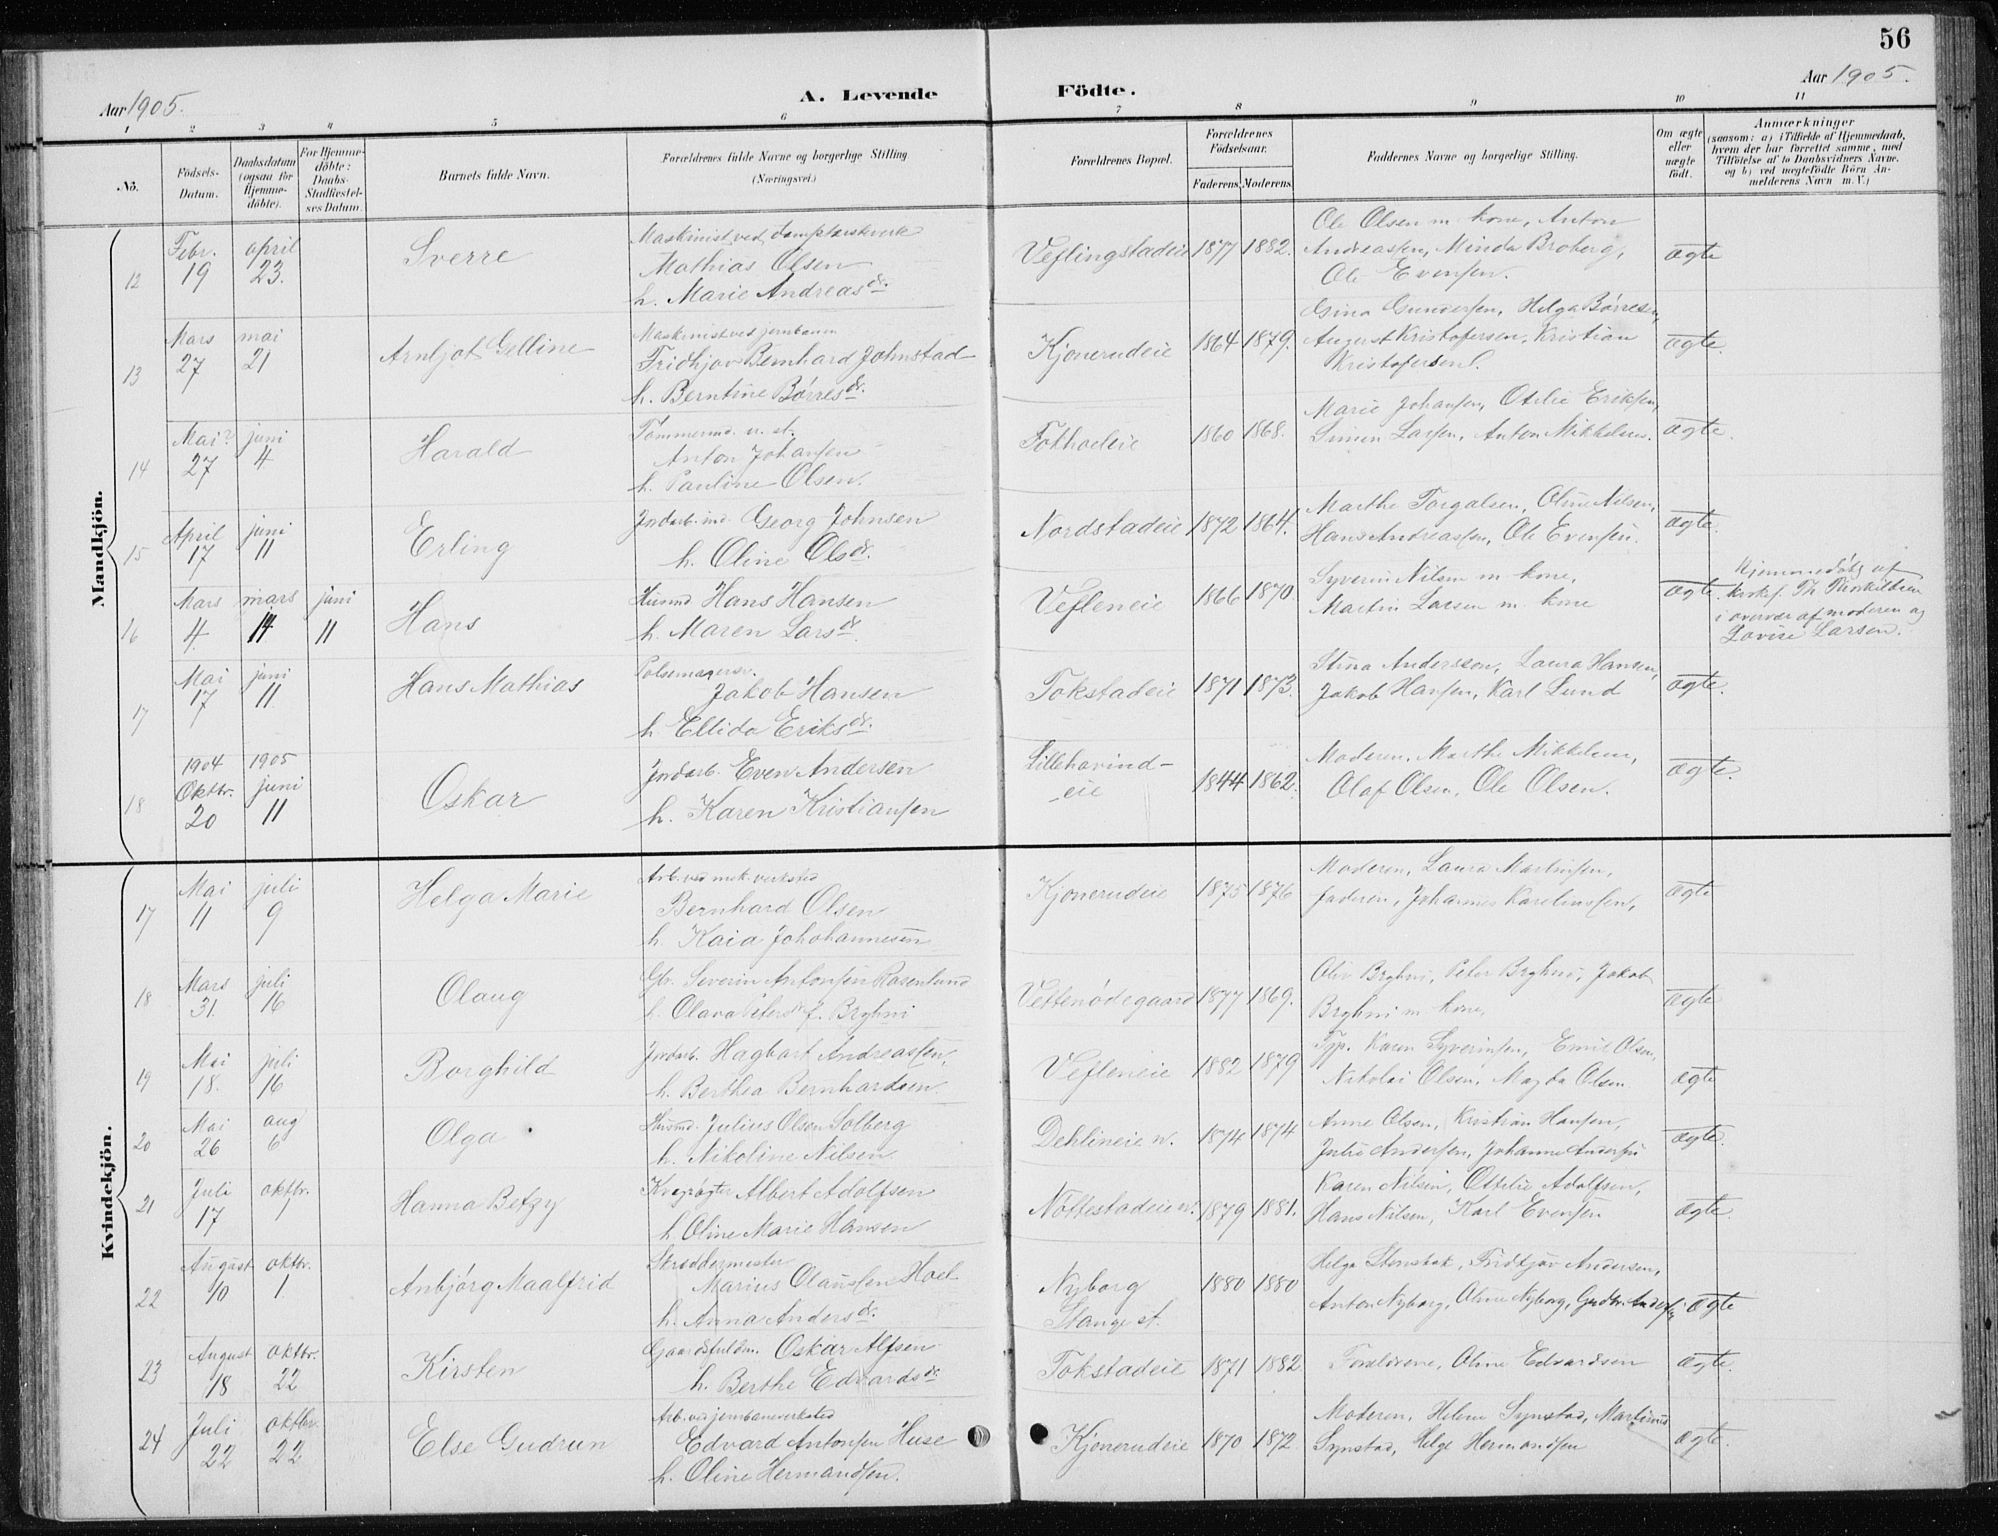 56
Aar 1905.
A. Levende Födte.
Aar 1905.
1 2 3 4 5 6 7 8 9 10 11
No.
Födsels-Datum.
Daabsdatum (ogsaa for Hjemme-döbte).
For Hjemme-döbte: Daabs-Stadfæstel-ses Datum.
Barnets fulde Navn.
Forældrenes fulde Navne og borgerlige Stilling (Næringsvei.)
Forældrenes Bopæl.
Forældrenes Födselsaar.
Faderens. Moderens.
Faddernes Navne og borgerlige Stilling.
Om ægte eller uægte födt.
Anmærkninger
(saasom: a) i Tilfælde af Hjemmedaab,
hvem der har forrettet samme, med
Tilföielse af to Daabsvidners Navne,
og b) ved uægtefödte Börn An-
melderens Navn m. V.)
Mandkjön.
12 Febr. 19 april 23. Sverre
Maskinist ved
Mathias Olsen
h. Marie Andreasdr.
Veflingstadeie 1877 1882.
Ole Olsen m kone, Anton
Andreassen, Minda Broberg,
Ole Evensen.
ægte
13 Mars 27 mai 21 Arnljot Gelline
Maskinist ved jernbanen
Fridhjov Bernhard Johnstad
h. Berntine Børresdr.
Kjonerudeie 1864 1879.
Gina Gundersen, Helga Børresen,
August Kristofersen, Kristian
Kristofersen.
ægte.
14 Mai? 27 juni 4 Harald
Tømmermd. u. st.
Anton Johansen
h. Pauline Olsen.
Fokhoeleie 1860 1868.
Marie Johansen, Otelie Eriksen,
Simen Larsen, Anton Mikkelsen.
ægte.
15 April 17 juni 11 Erling
Jordarb. ind. Georg Johnsen
h. Oline Olsdr.
Nordstadeie 1872 1864.
Marthe Torgalsen, Oline Nilsen,
Hans Andreassen, Ole Evensen.
ægte.
16 Mars 4. mars 14 juni 11 Hans
Husmd Hans Hansen
h. Maren Larsdr.
Vefleneie 1866 1870.
Syverin Nilsen m kone,
Martin Larsen m. kone
ægte.
Hjemmedøbt af
i overvær af moderen og
Lovise Larsen.
17 Mai 17 juni 11 Hans Mathias
Pølsemagersv.
Jakob Hansen
h. Ellida Eriksdr.
Tokstadeie 1871 1873.
Stina Andersson, Laura Hansen,
Jakob Hansen, Karl Lund
ægte.
18 1904 Oktbr. 20 1905 juni 11 Oskar
Jordarb. Even Andersen
h. Karen Kristiansen
Lillehovind-
eie 1844 1862.
Moderen, Marthe Mikkelsen,
Olaf Olsen, Ole Olsen.
ægte.
Kvindekjön.
17 Mai 11 juli 9 Helga Marie
Arb. ved mek. verksted
Bernhard Olsen
h. Kaia Johohannesen
Kjonerudeie 1875 1876
Moderen, Laura Martinsen,
faderen, Johannes Karelinssen,
ægte
18 Mars 31. juli 16 Olaug
Gbr. Severin Antonsen Rosenlund
h. Olava Petersdr f. Bryhni
Vettenødegaard 1877 1869.
Oliv Bryhni, Peter Bryhni, Jakob
Bryhni m kone,
ægte
19 Mai 18. juli 16 Borghild
Jordarb. Hagbart Andreassen,
h. Berthea Bernhardsen.
Vefleneie 1882 1879
Karen Syverinsen, Emil Olsen,
Nikolai Olsen, Magda Olsen
ægte
20 Mai 26 aug 6 Olga
Husmd. Julius Olsen Solberg
h. Nikoline Nilsen
Dehlineie n. 1874 1874
Anne Olsen, Kristian Hansen,
Julie Andersen, Johanne Andersen
ægte.
21 Juli 17 oktbr. 1 Hanna Betzy
Kvægrøgter Albert Adolfsen
h. Oline Marie Hansen
Nøttestadeie n. 1879 1881.
Karen Nilsen, Ottilie Adolfsen,
Hans Nilsen, Karl Evensen
ægte.
22 August 10 oktbr. 1. Anbjørg Maalfrid
Skreddermester
Marius Olaussen Hoel
h. Anna Andersdr.
Nyborg
Stange st. 1880 1880
Helga Stensbak, Fridtjov Andersen,
Anton Nyborg, Oline Nyborg, Gudbr. Andersen
ægte
23 August 18 oktbr. 22 Kirsten
Gaardsfuldm. Oskar Alfsen
h. Berthe Edvardsdr
Tokstadeie 1871 1882
Forældrene, Oline Edvardsen
ægte.
24 Juli 22 oktbr. 22 Else Gudrun
Arb. ved jernbaneverksted
Edvard Antonsen Huse
h. Oline Hermandsen.
Kjonerudeie 1870 1872.
Moderen, Helene Synstad, Martinus
Synstad, Helge Hermandsen
ægte.